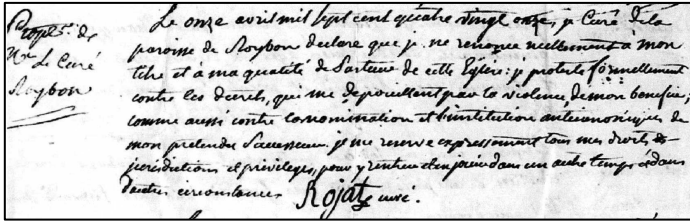 Protest. de
Mr Le Curé
Roybon
Le onze avril mil sept cent quatre vingt onze, je Curé de la
paroisse de Roybon declare que je ne renonce nullement à mon
titre et à ma qualité de Pasteur de cette Eglise: je proteste formellement
contre les decrets, qui me depouillent par la violence, de mon benefice;
comme aussi contre la nomination et l'institution anticanoniques de
mon pretendu Successeur. je me reserve expressement tous mes droits de
jurisdictions et privileges, pour y rentrer et en jouir dans un autre temps et dans
d'autres circonstances Rojat curé.